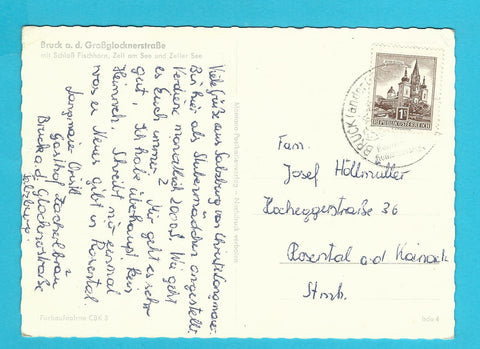 Bruck a. d. Großglocknerstraße
mit Schloß Fischhorn, Zell am See und Zeller See
Viele Grüße aus Salzburg von Christl Langmaier
Bin hier als Stubenmädchen angestellt
Verdiene monatlich 2000 S. Wie geht
es Euch immer? Mir geht es sehr
gut, Ich habe überhaupt kein
Heimweh, Schreibt mir einmal
was es Neues gibt in Rosental.
Langmaier Christl
Gasthof
Bruck a.d. Glocknerstraße
Salzburg.
REPUBLIK ÖSTERREICH
BRUCK
Fam.
Josef Höllmüller
Hocheggerstraße 36
Rosental a.d. Kainach
Stmk.
Farbaufnahme CBK 3
bda 4